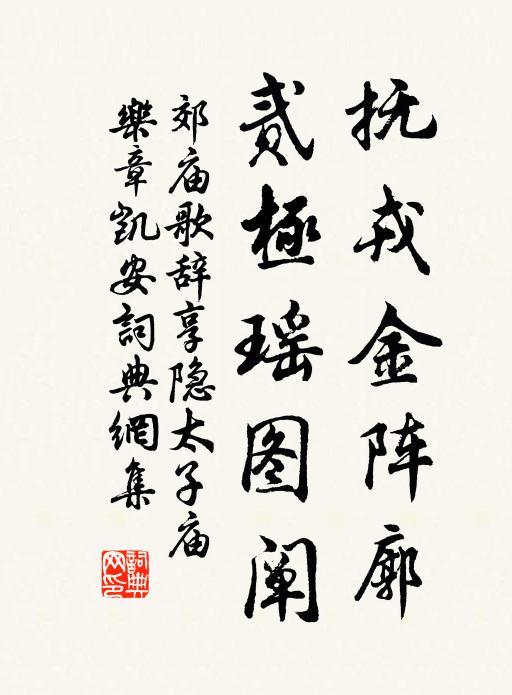 抚戎金阵廓
贰極瑶图阐
郊庙歌辞享隐太子庙
樂章凯安詞典網集
詞典网印